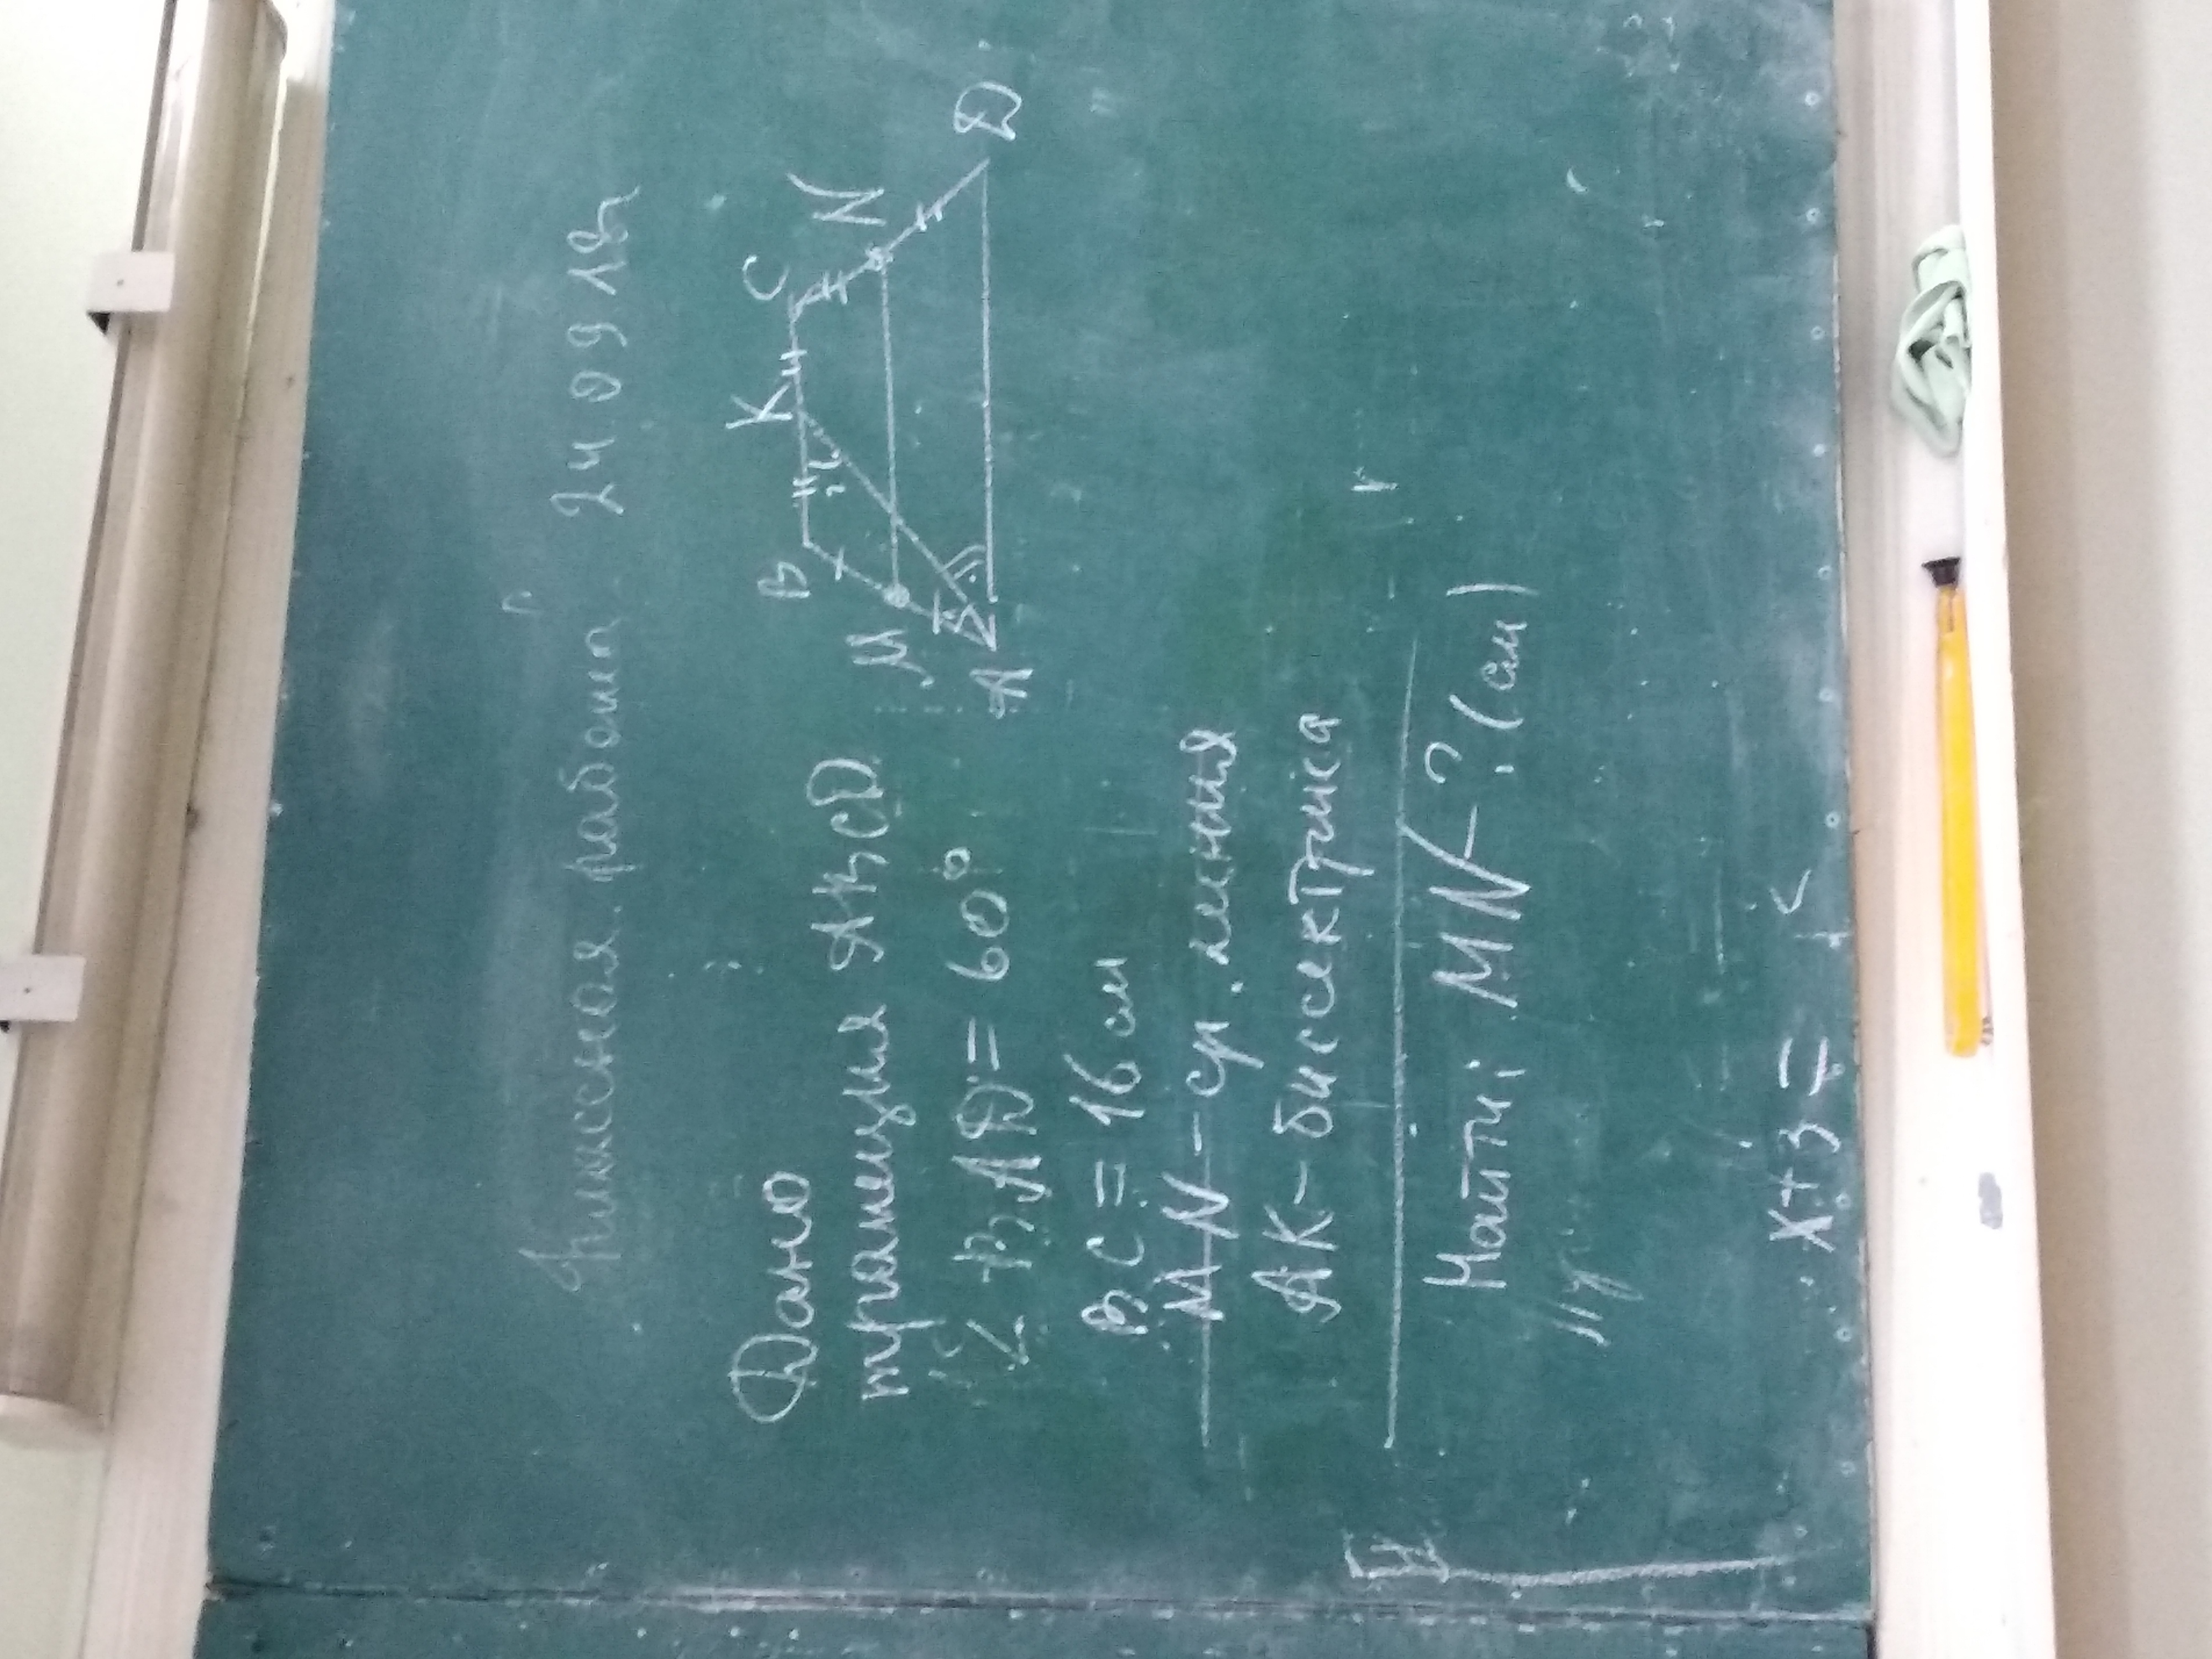 Классная работа 24 09 18г
Дано
трапеция ABCD
∠BAD = 60°
BC = 16 см
MN - ср. линия
AK - биссектриса
Найти: MN - ? (см)
B K C
M N
A D
x+3=